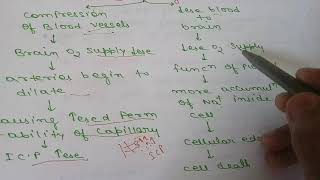 compression
of Blood vessels
Brain O2 supply ↓ese
arteries begin to
dilate
ausing ↑esed Perm
ability of capillary
I.C.P ↑ese
↓ese blood
to
brain
↓ese O2 supply
func^n of
more accumul^n
of Na+ inside
cell
cellular ede
cell death